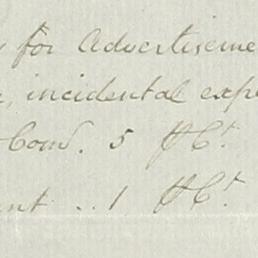 for Advertiseme
, incidental expe
Com. 5 ⅌ Ct.
nt .. 1 ⅌ Ct.